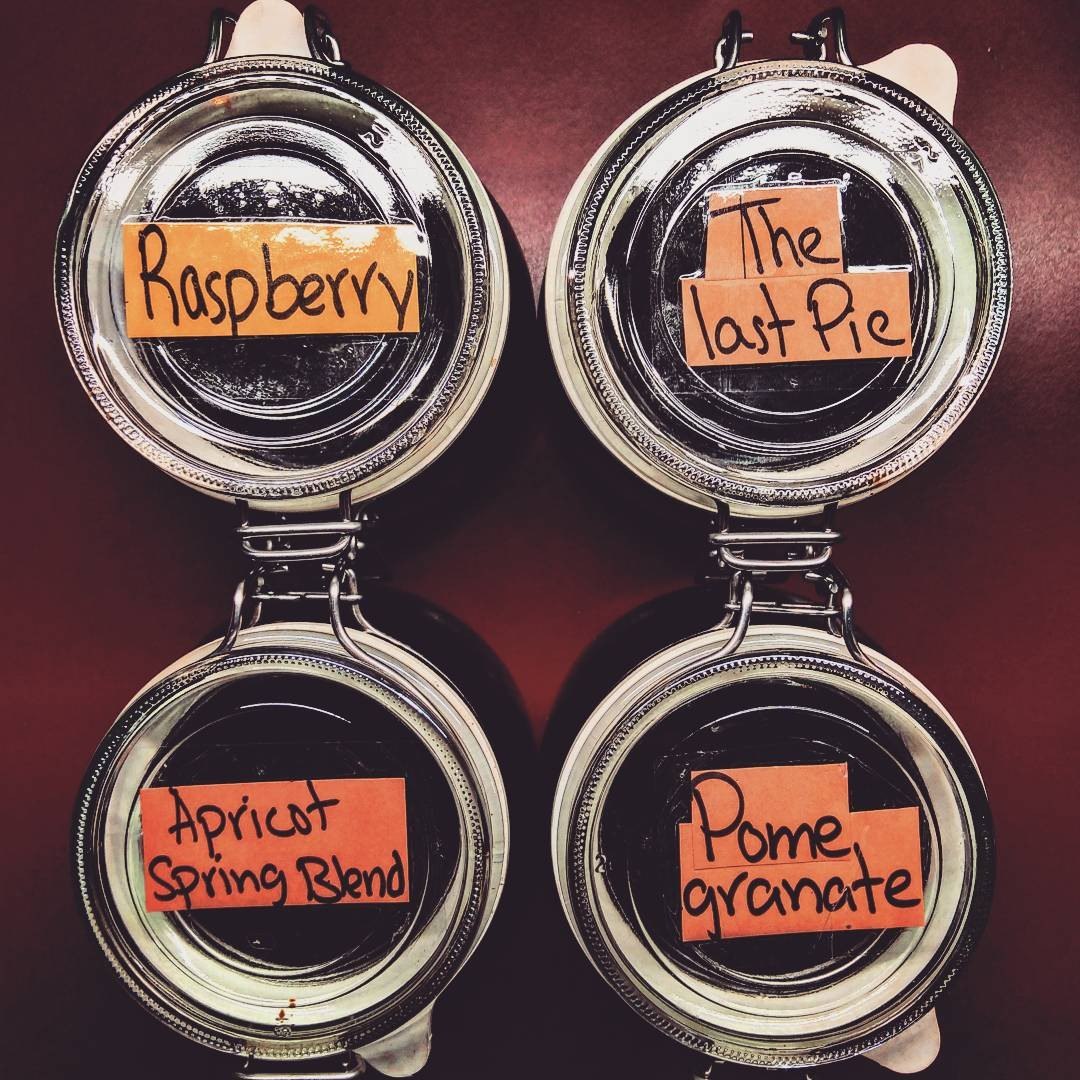 Raspberry
The
last Pie
Apricot
Spring Blend
Pome
granate